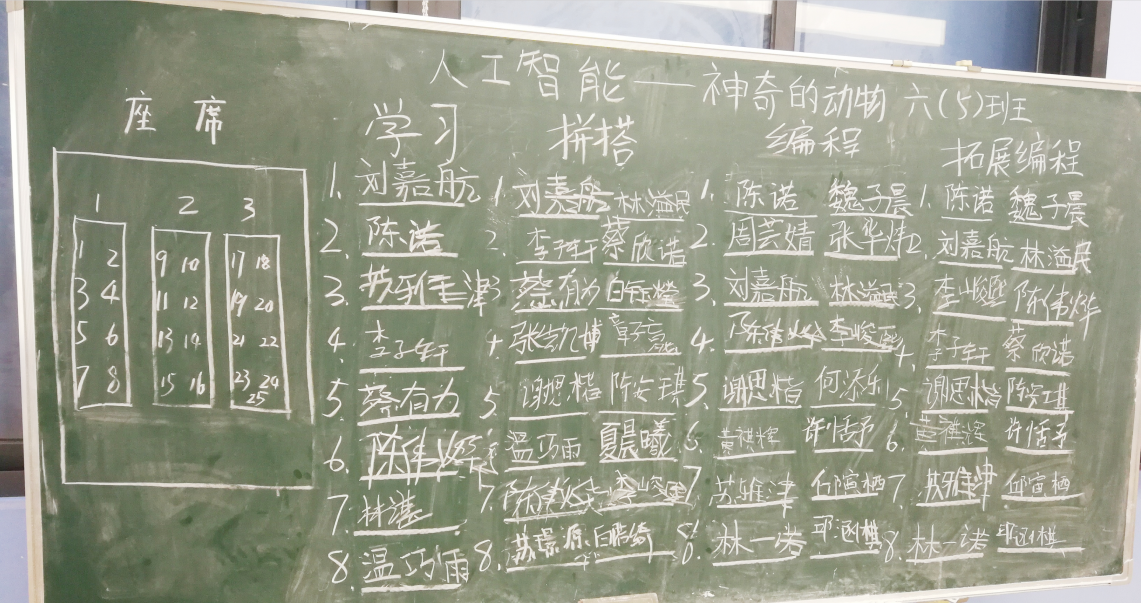 人工智能——神奇的动物 六(5)班
座席
1 2 3
1 2 9 10 17 18
3 4 11 12 19 20
5 6 13 14 21 22
7 8 15 16 23 24
25
学习
1. 刘嘉航
2. 陈诺
3. 苏雅津
4. 李子轩
5. 蔡有为
6. 陈伟烨
7. 林溢
8. 温巧雨
拼搭
1. 刘嘉航 林溢民
2. 李子轩 蔡欣诺
3. 蔡有为
4. 张凯博
5. 谢思楷 陈安琪
6. 温巧雨 夏晨曦
7. 陈伟烨 李峻熙
8. 苏璟源 白皓绮
编程
1. 陈诺 魏子晨
2. 周芸婧 张华炜
3. 刘嘉航 林溢民
4. 陈伟烨 李峻熙
5. 谢思楷 何添乐
6. 黄祺辉 许恬予
7. 苏雅津 邱寅栖
8. 林一诺 邱涵棋
拓展编程
1. 陈诺 魏子晨
2. 刘嘉航 林溢民
3. 李峻熙 陈伟烨
4. 李子轩 蔡欣诺
5. 谢思楷 陈安琪
6. 黄祺辉 许恬予
7. 苏雅津 邱寅栖
8. 林一诺 邱涵棋